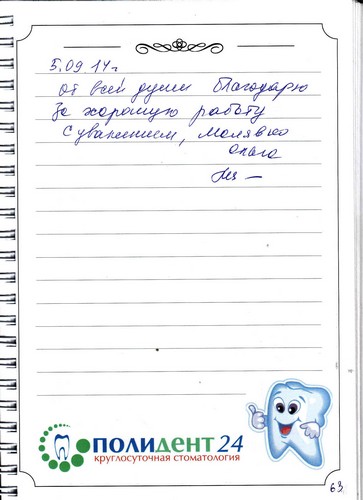 5.09 14г
От всей души благодарю
За хорошую работу
С уважением, Молявко
Ольга
ПОЛИДЕНТ 24
круглосуточная стоматология
63